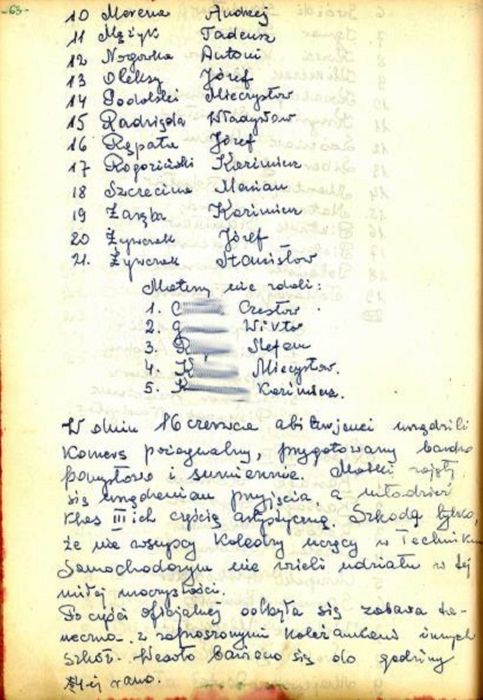 -63-
10 Morena Andrzej
11 Mężyk Tadeusz
12 Nogovka Antoni
13 Oleksy Józef
14 Podolski Mieczysław
15 Radzięda Władysław
16 Rzpała Józef
17 Rogoziński Kazimierz
18 Szczecina Marian
19 Zarzba Kazimierz
20 Żywczak Józef
21. Żywczak Stanisław
Matury nie zdali:
1. C Czesław
2. G Wiktor
3. R Stefan
4. K Mieczysław.
5. K Kazimierz.
W dniu 16 czerwca abiturienci urządzili
Komers pożegnalny, przygotowany bardzo
pomysłowo i sumiennie. Matki zajęły
się urządzeniem przyjęcia, a młodzież
klas III ich częścią artystyczną. Szkoda tylko,
że nie wszyscy Koledzy uczący w Technikum
Samochodowym nie wzieli udziału w tej
miłej uroczystości.
Po części oficjalnej odbyła się zabawa ta-
neczna z zaproszonymi koleżankami z innych
szkół. Wesoło bawiono się do godziny
4-ej rano.